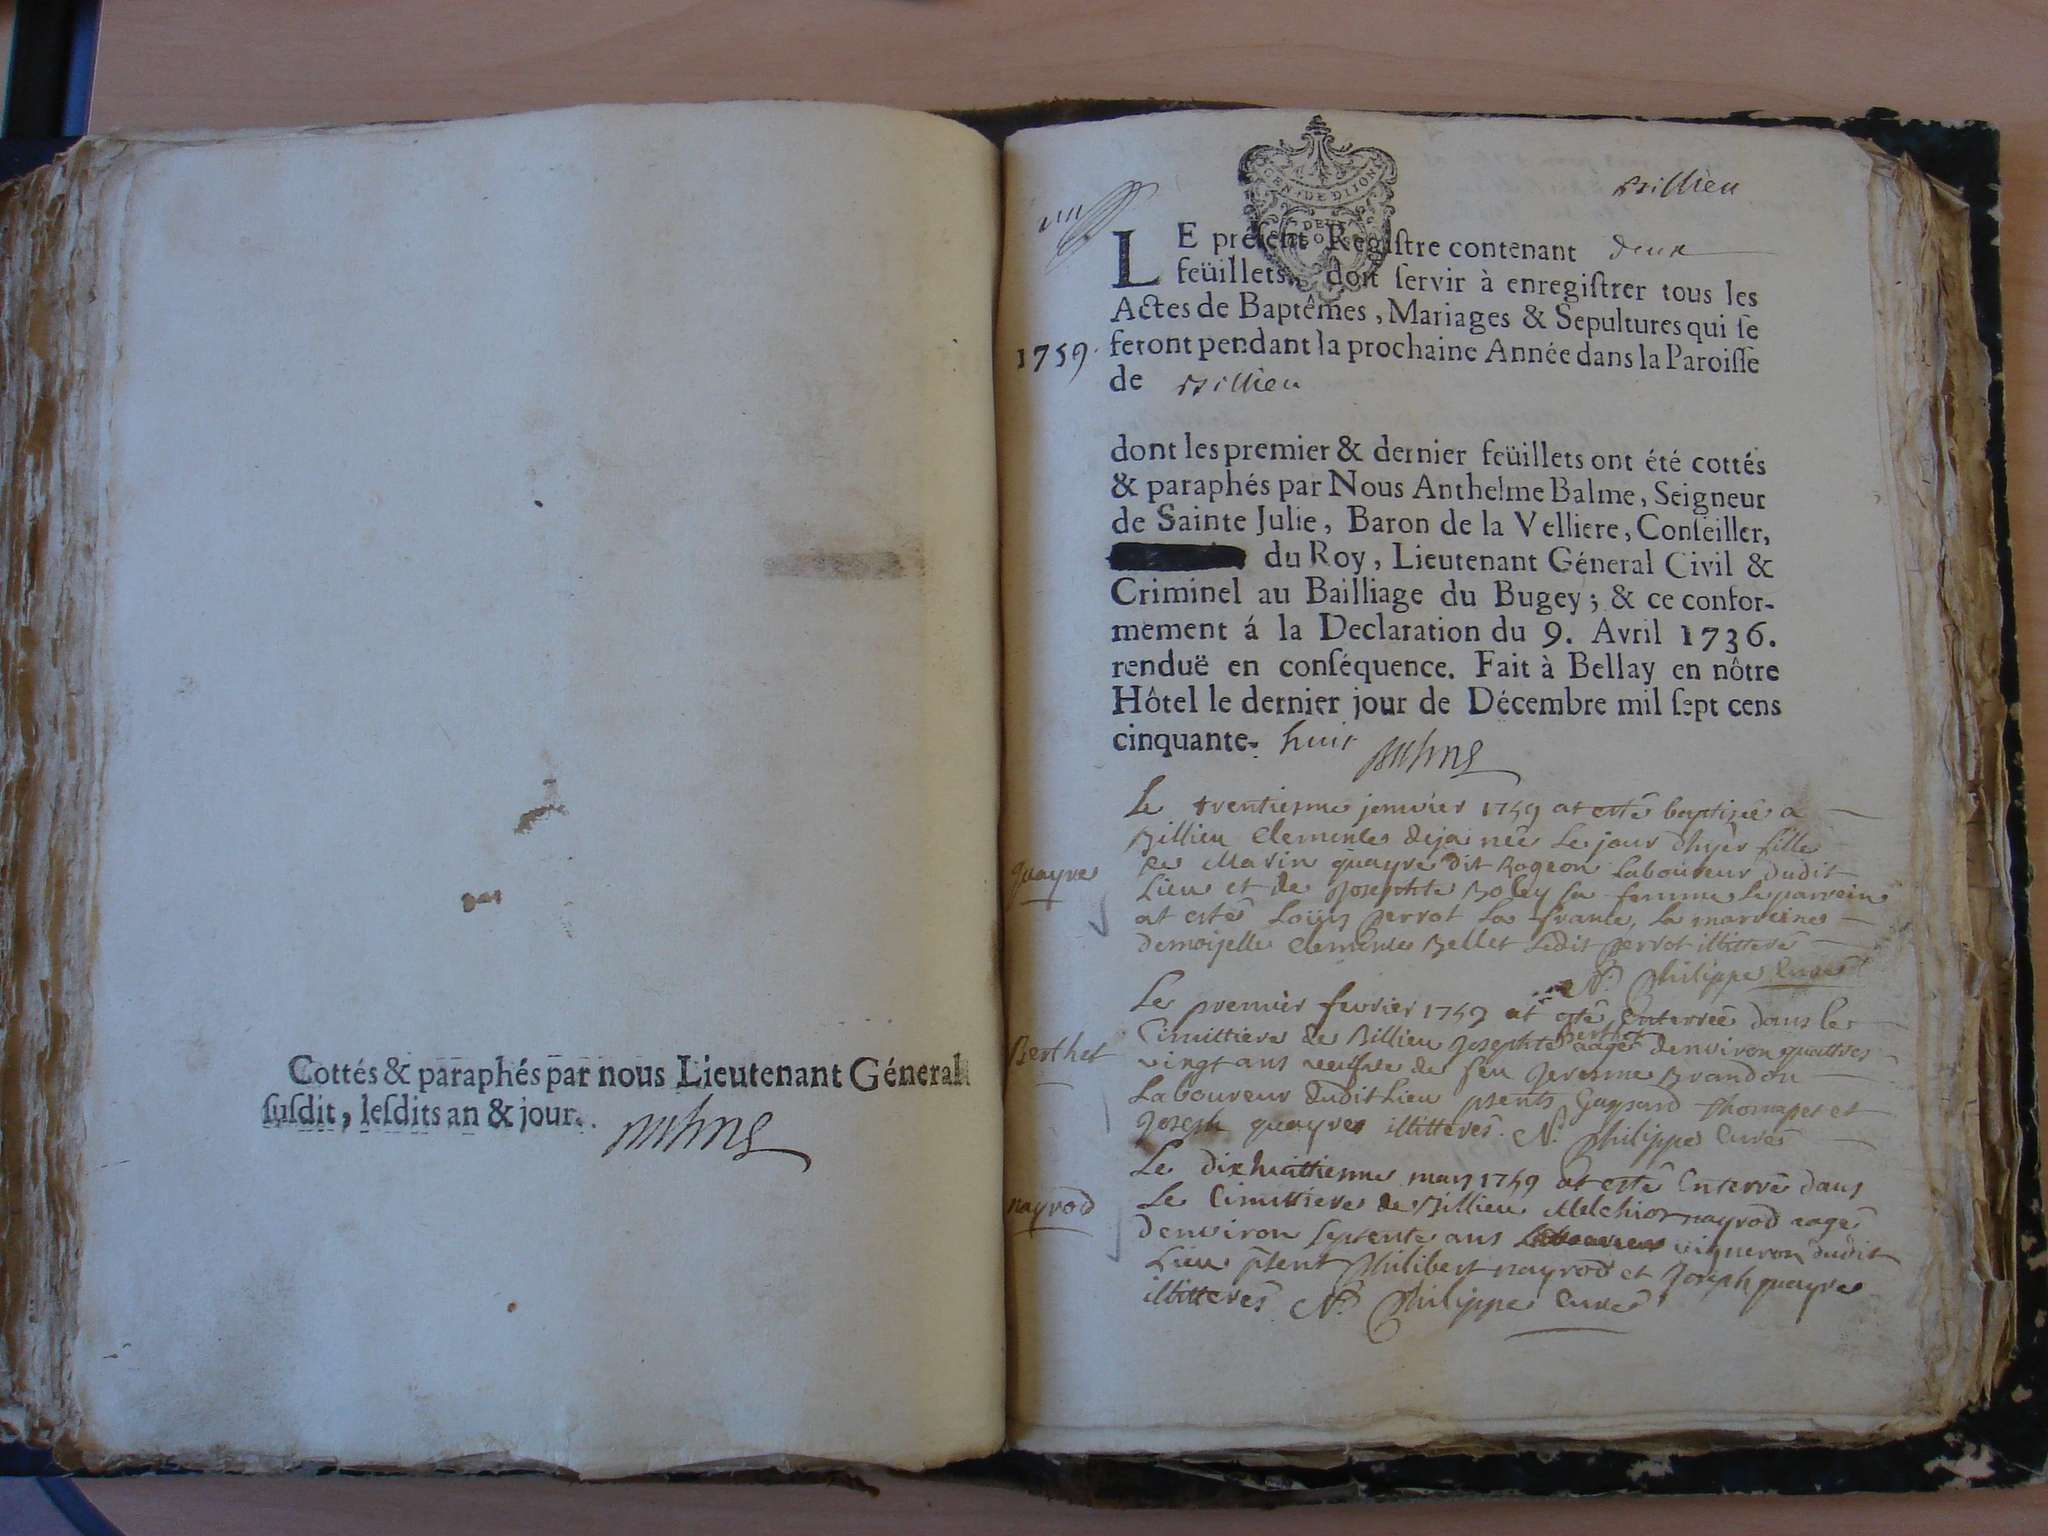 Cottés & paraphés par nous Lieutenant Géneral
ſuſdit, leſdits an & jour.
Billieu
GEN DE DIJON
DEUX
LE préſent Regiſtre contenant deux
feüillets, doit ſervir à enregiſtrer tous les
Actes de Baptêmes, Mariages & Sepultures qui ſe
1759. feront pendant la prochaine Année dans la Paroiſſe
de Billieu
dont les premier & dernier feüillets ont été cottés
& paraphés par Nous Anthelme Balme, Seigneur
de Sainte Julie, Baron de la Velliere, Conſeiller,
du Roy, Lieutenant Géneral Civil &
Criminel au Bailliage du Bugey; & ce confor-
mement á la Declaration du 9. Avril 1736.
renduë en conſéquence. Fait à Bellay en nôtre
Hôtel le dernier jour de Décembre mil ſept cens
cinquante. huit
Le trentiesme janvier 1759 at esté baptizée a
Billieu Clemente deja née le jour d'hyer fille
quayre
de Marin quayre dit Rogeon laboureur dudit
Lieu et de Josephte Boley sa femme le parrein
at esté Loüis Perrot la france, la marreine
demoiselle Clemente Bellet ledit Perrot illitteré
N. Philippe Curé
Le premier fevrier 1759 at esté Enterrée dans le
Berthet
Cimittiere de Billieu Josephte Berthet aagée denviron quattres
vingt ans veufve de feu Jeresme Brandon
Laboureur dudit Lieu psents Gaspard Thomasset et
Joseph quayre illitterés. N. Philippe Curé
Le dixhuittiesme mars 1759 at esté Enterré dans
nayrod
Le Cimittiere de Billieu Melchior nayrod aagé
denviron septente ans vigneron dudit
Lieu psent Philibert nayrod et Joseph quayre
illitterés N. Philippe Curé